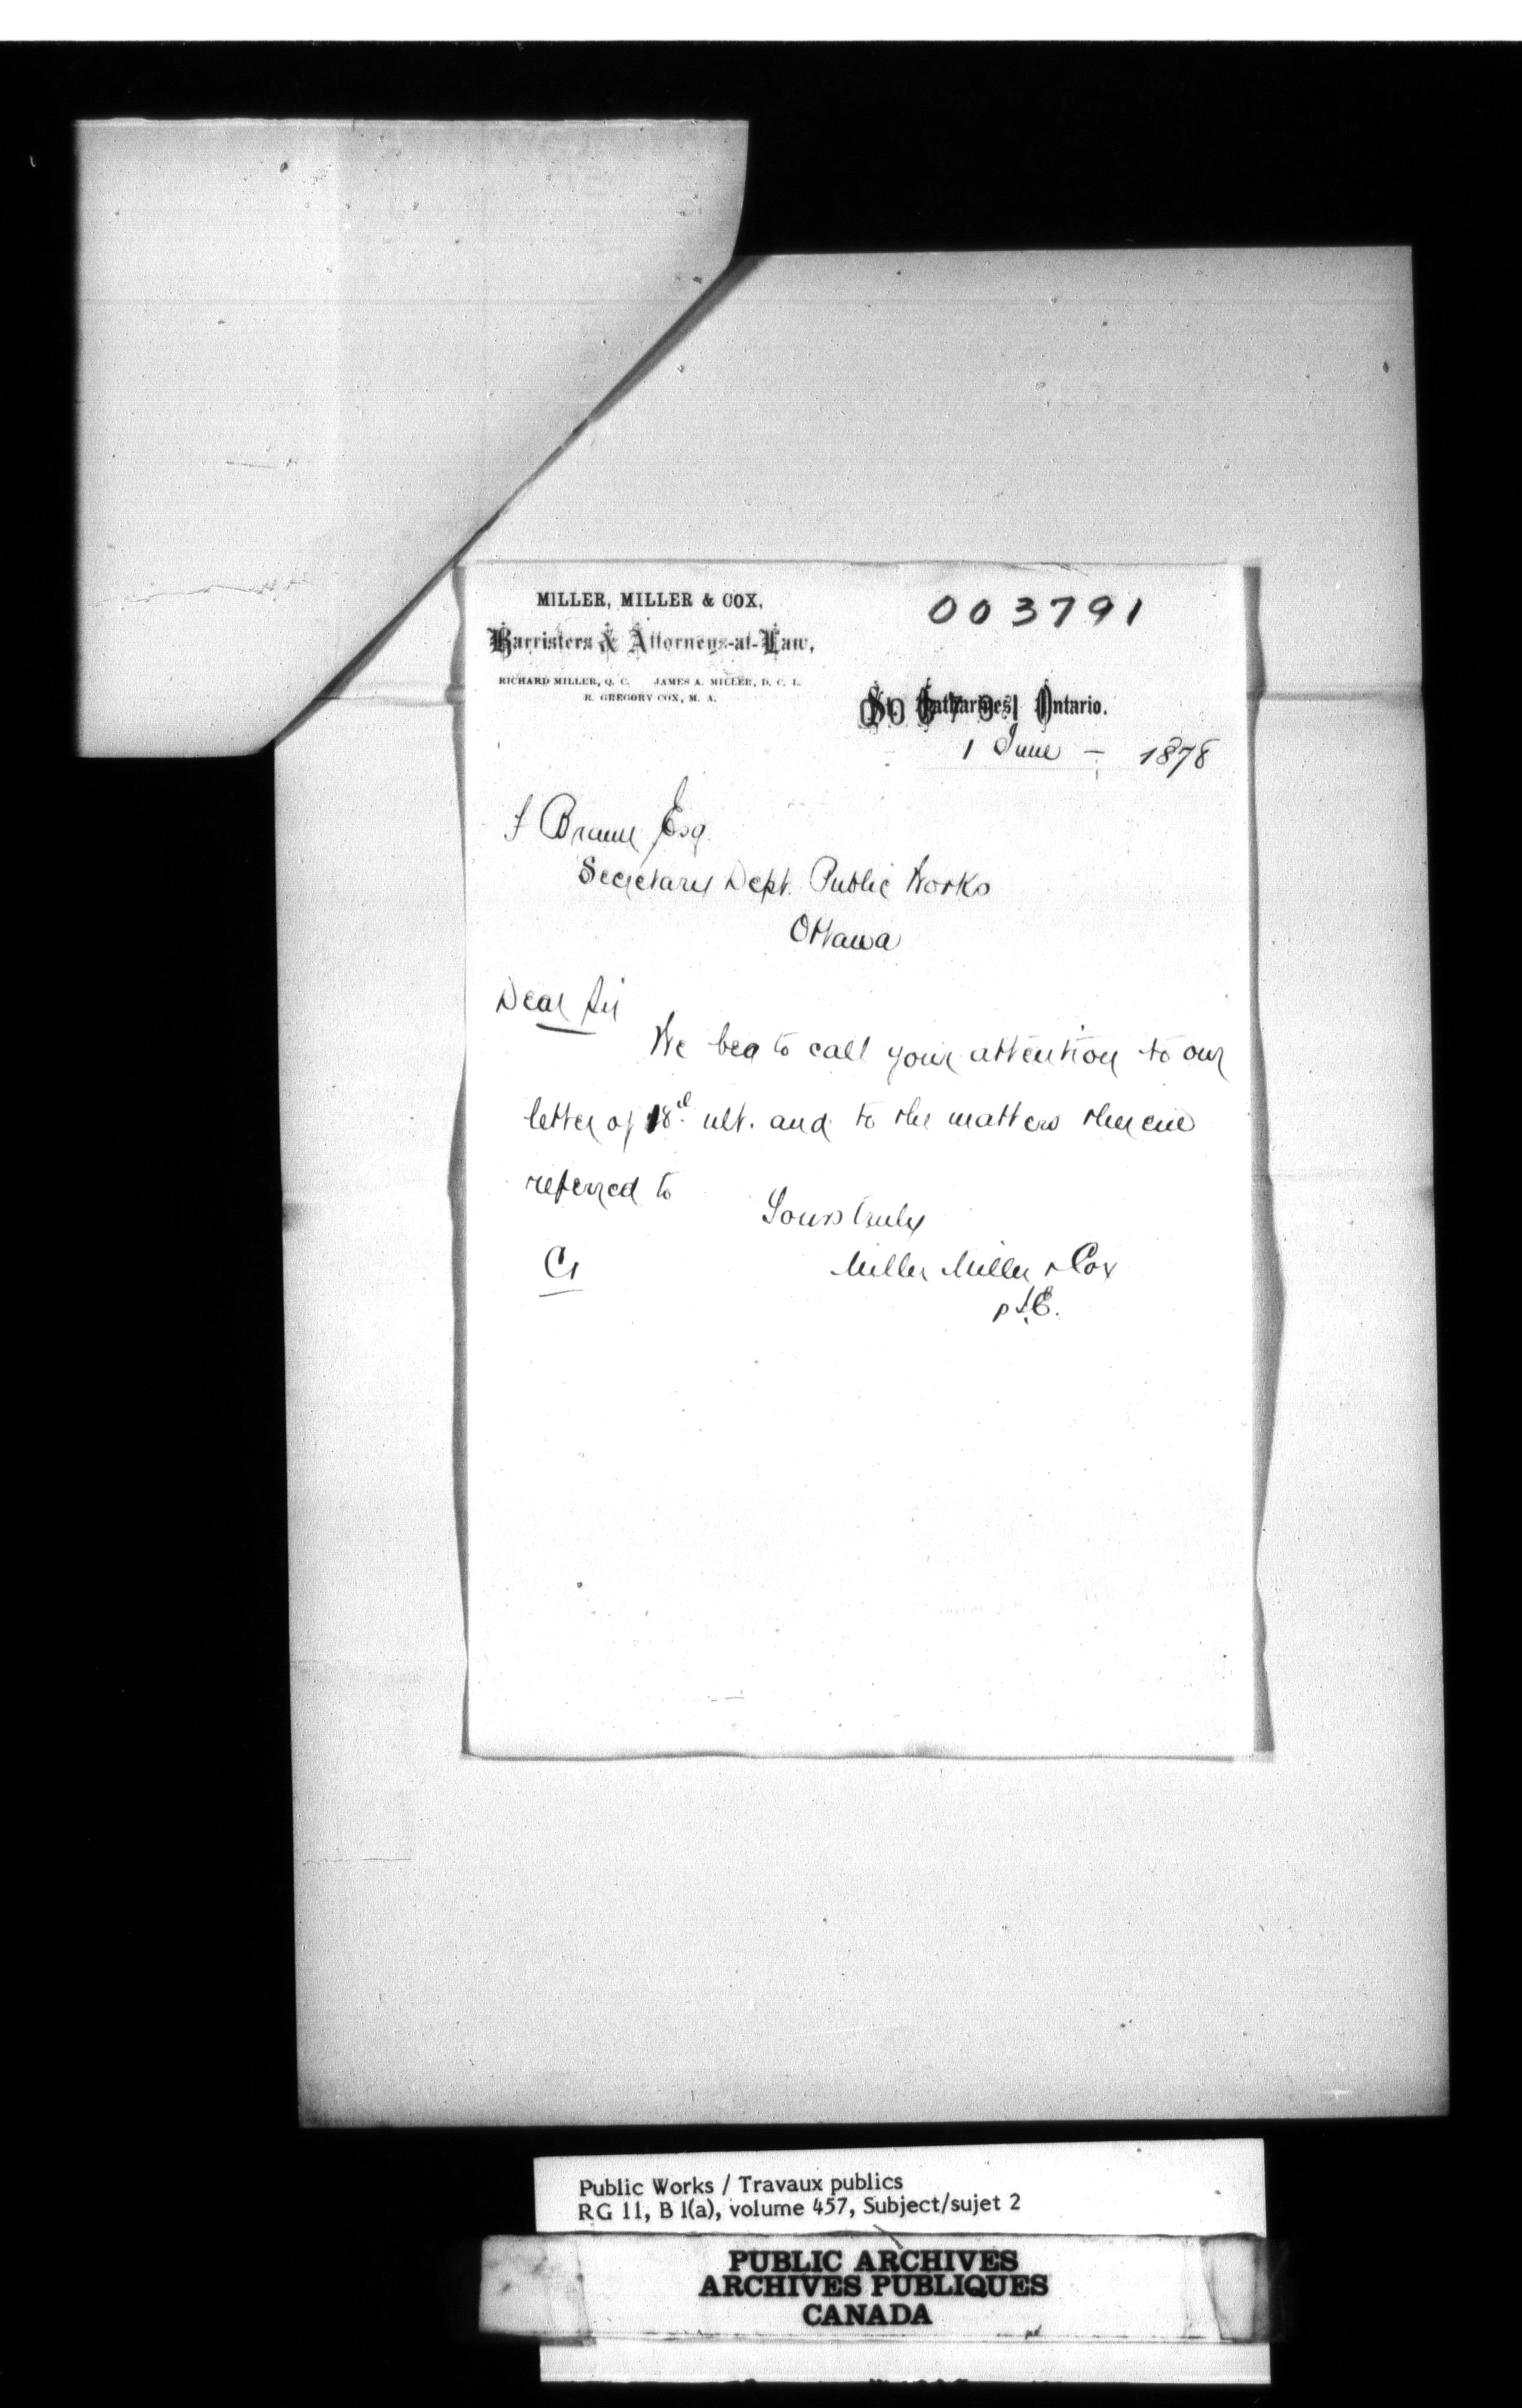 MILLER, MILLER & COX,
003791
Barristers & Attorneys-at-Law,
RICHARD MILLER, Q. C. JAMES A. MILLER, D. C. L.
R. GREGORY COX, M. A.
St. Catharines, Ontario.
1 June - 1878
F Braun Esq.
Secretary Dept. Public Works
Ottawa
Dear Sir
We beg to call your attention to our
letter of 18th ult. and to the matters therein
referred to
Yours truly
Miller Miller & Cox
Public Works / Travaux publics
RG 11, B 1(a), volume 457, Subject/sujet 2
PUBLIC ARCHIVES
ARCHIVES PUBLIQUES
CANADA